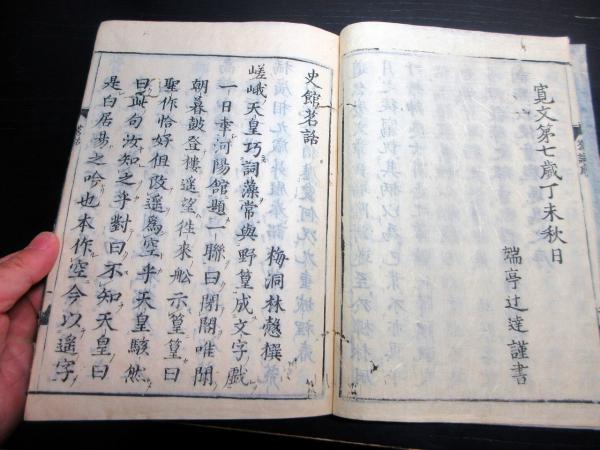 寛文第七歳丁未秋日
端亭辻達謹書
史館茗話
梅洞林愨撰
嵯峨天皇巧詞藻常與野篁成文字戲
一日幸河陽館題一聯曰閉閣唯聞
朝暮鼓登樓遙望往来舩示篁篁曰
聖作恰好但改遙爲空乎天皇駭然
曰此句汝知之乎對曰不知天皇曰
是白居易之吟也本作空今以遙字